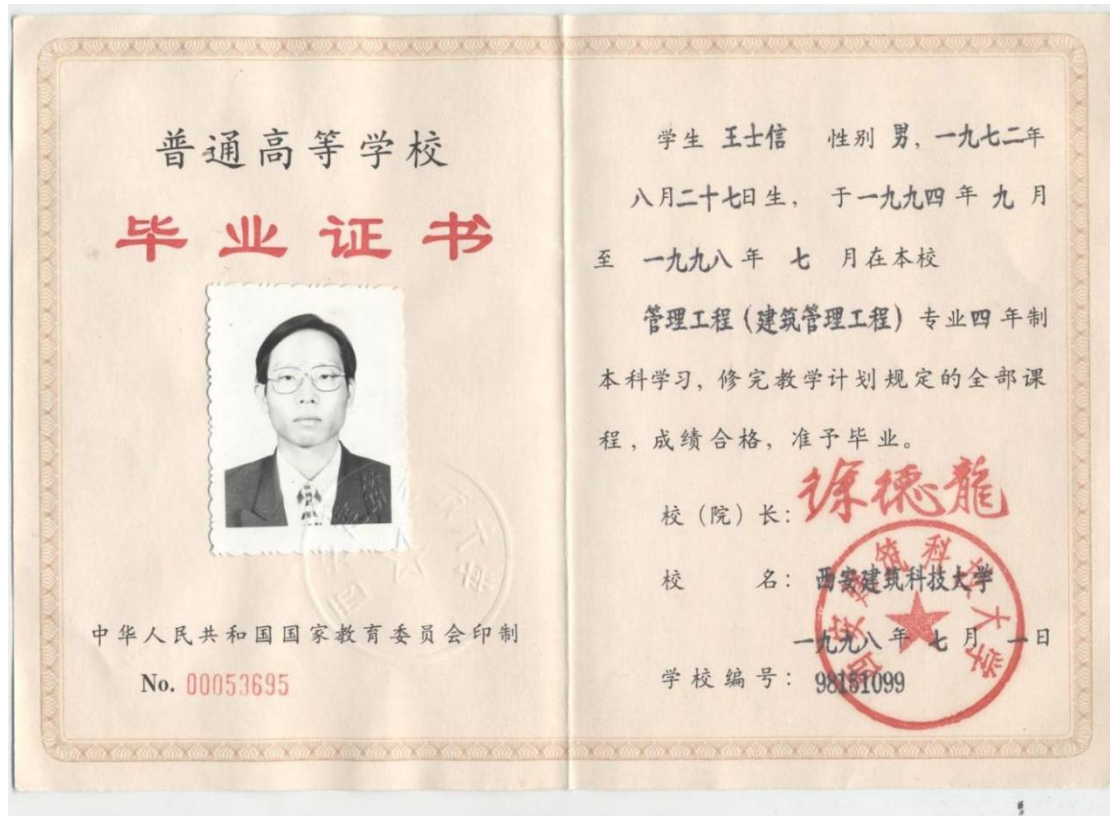 普通高等学校
毕业证书
中华人民共和国国家教育委员会印制
No. 00053695
学生 王士信 性别 男, 一九七二年
八月二十七日生, 于一九九四年九月
至 一九九八年 七 月在本校
管理工程(建筑管理工程)专业四年制
本科学习, 修完教学计划规定的全部课
程, 成绩合格, 准予毕业。
校(院)长: 徐德龍
校 名: 西安建筑科技大学
一九九八年七月一日
学校编号: 98151099
西安建筑科技大学